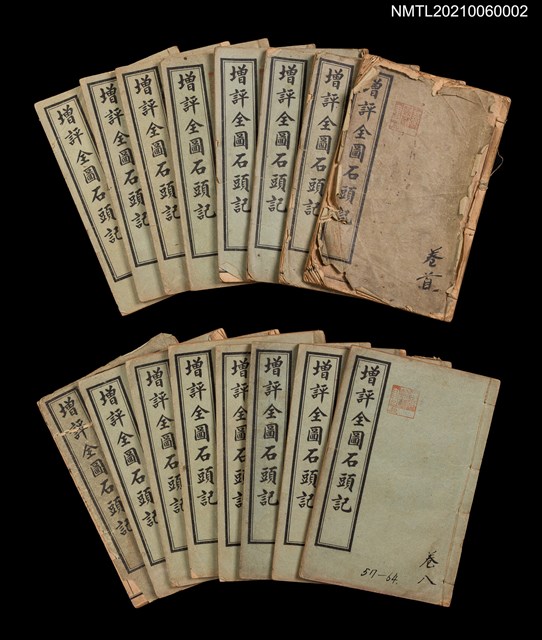 NMTL20210060002
增評全圖石頭記
增評全圖石頭記
增評全圖石頭記
增評全圖石頭記
增評全圖石頭記
增評全圖石頭記
增評全圖石頭記
增評全圖石頭記
卷首
增評全圖石頭記
增評全圖石頭記
增評全圖石頭記
增評全圖石頭記
增評全圖石頭記
增評全圖石頭記
增評全圖石頭記
增評全圖石頭記
卷八
57-64.